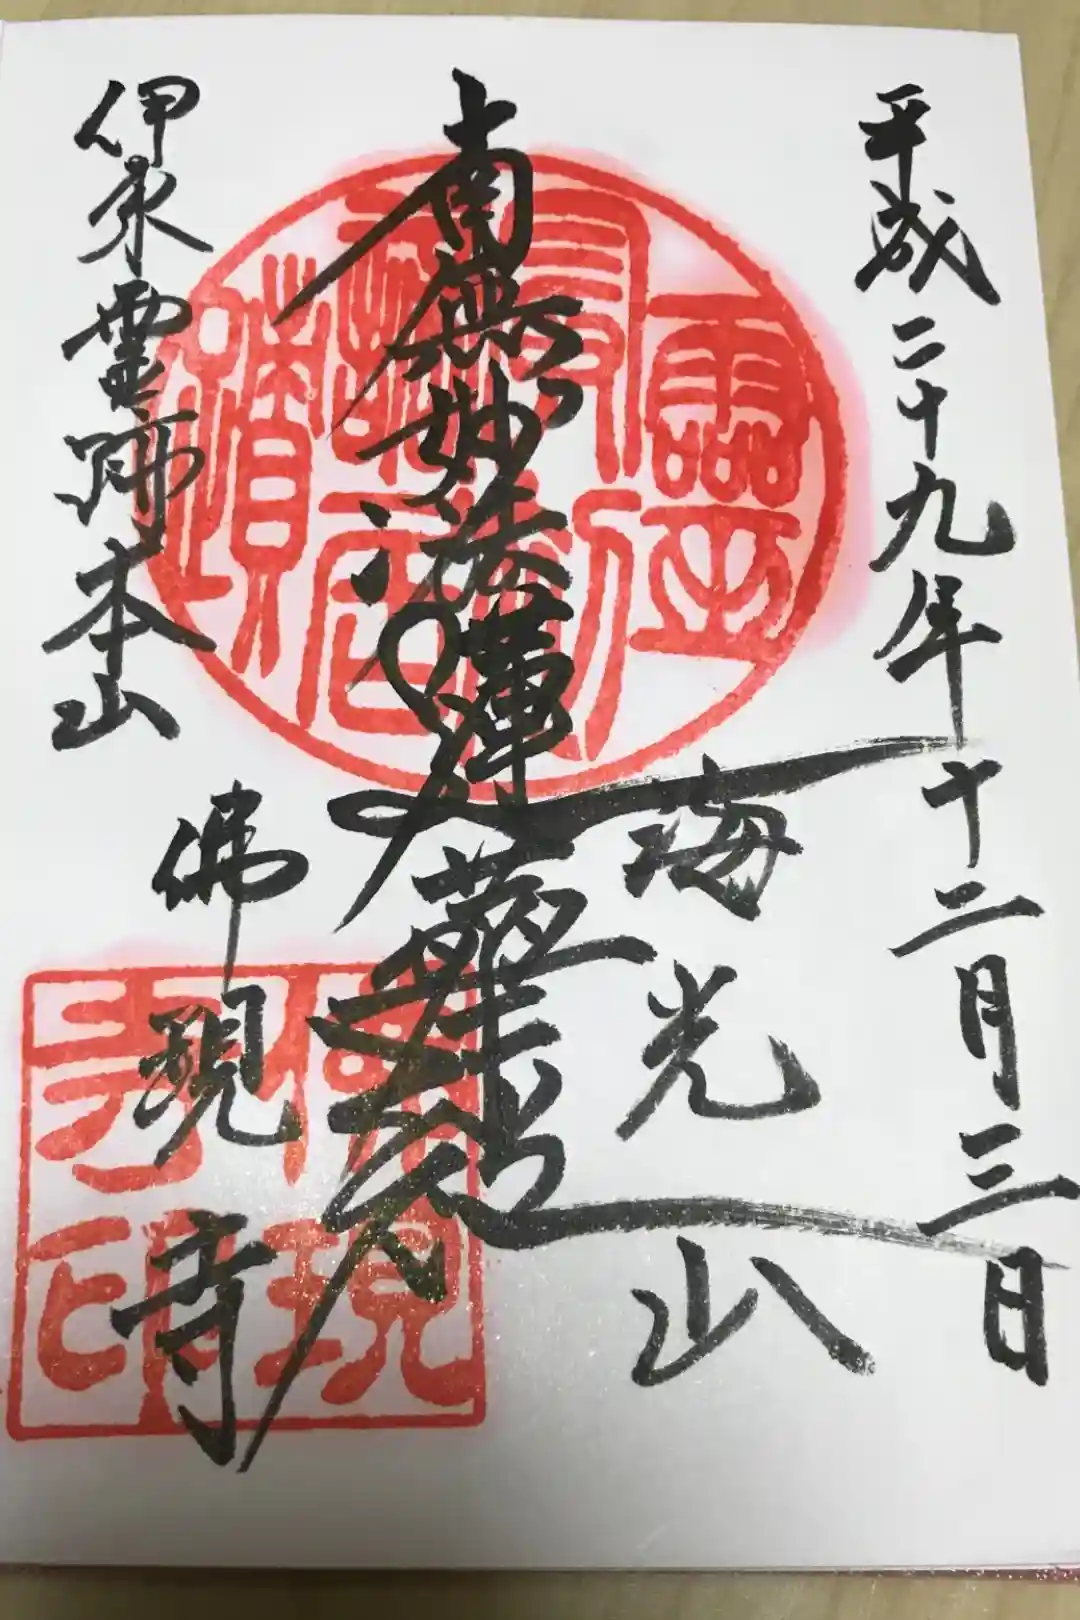 平成二十九年十二月三日
海光山
南無妙法蓮華経
伊東霊跡本山
佛現寺
佛現寺印